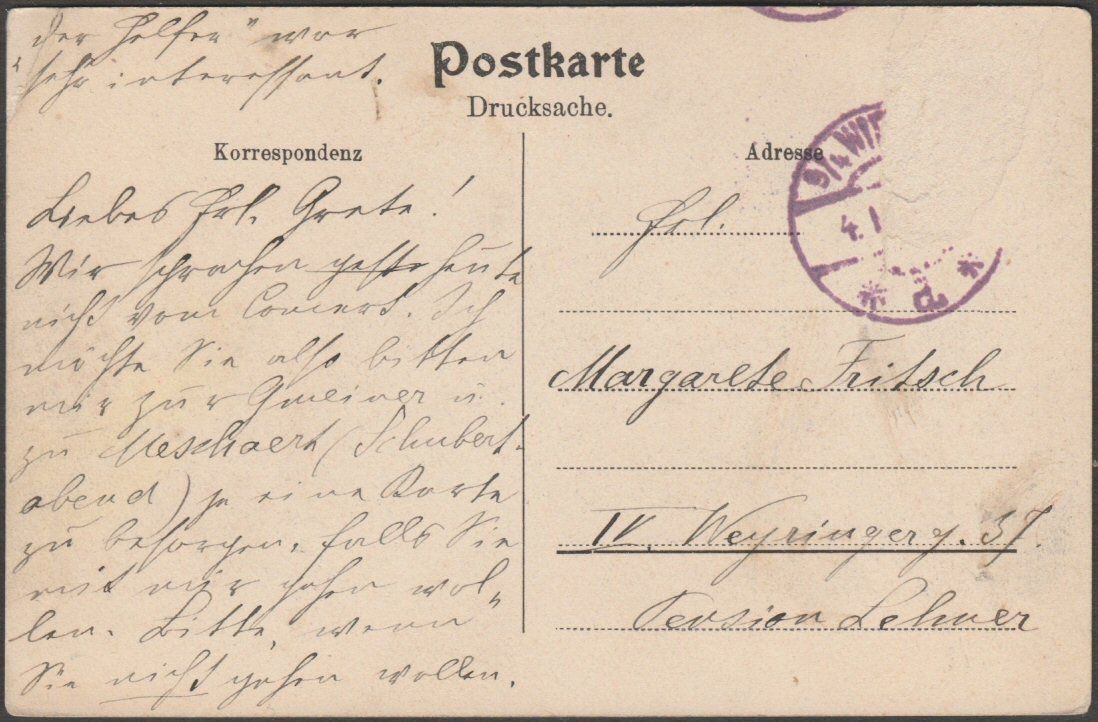 "der Helfer" war
sehr interessant.
Postkarte
Drucksache.
Korrespondenz
Adresse
9/4 WI
4. I
Liebes Frl. Grete!
Wir sprachen heute
nicht vom Concert. Ich
möchte Sie also bitten
mir zur Gmeiner u.
zu Meschaert (Schubert-
abend) je eine Karte
zu besorgen, falls Sie
mit mir gehen wol-
len. Bitte, wenn
Sie nicht gehen wollen.
Frl.
Margarete Fritsch
IV. Weyringerg. 37.
Pension Lehner